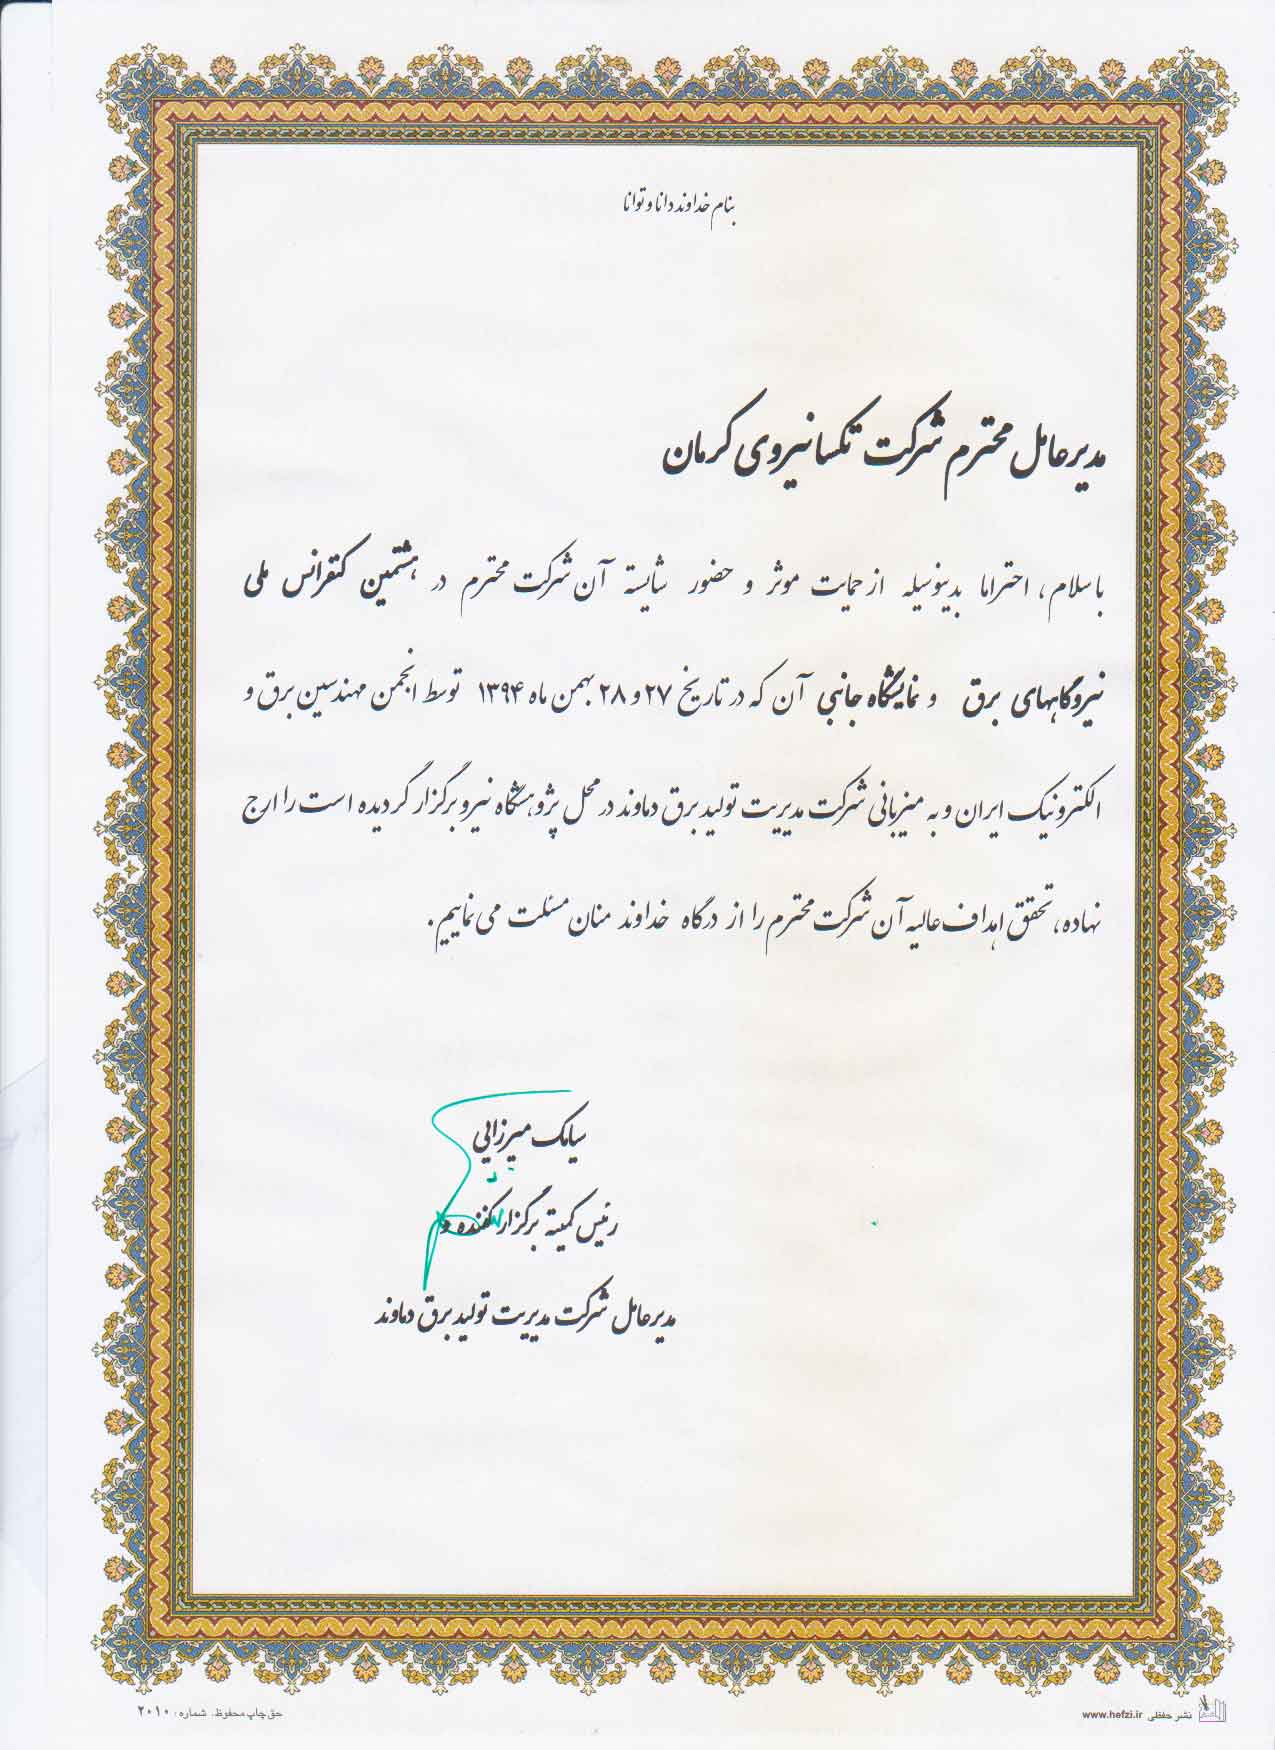 بنام خداوند دانا و توانا
مدیرعامل محترم شرکت تکسا نیروی کرمان
با سلام، احتراما بدینوسیله از حمایت موثر و حضور شایسته آن شرکت محترم در هشتمین کنفرانس ملی
نیروگاههای برق و نمایشگاه جانبی آن که در تاریخ ۲۷ و ۲۸ بهمن ماه ۱۳۹۴ توسط انجمن مهندسین برق و
الکترونیک ایران و به میزبانی شرکت مدیریت تولید برق دماوند در محل پژوهشگاه نیرو برگزار گردیده است را ارج
نهاده، تحقق اهداف عالیه آن شرکت محترم را از درگاه خداوند منان مسئلت می نماییم.
سیامک میرزایی
رئیس کمیته برگزار کننده و
مدیرعامل شرکت مدیریت تولید برق دماوند
نشر حفظی www.hefzi.ir
حق چاپ محفوظ. شماره: ۲۰۱۰